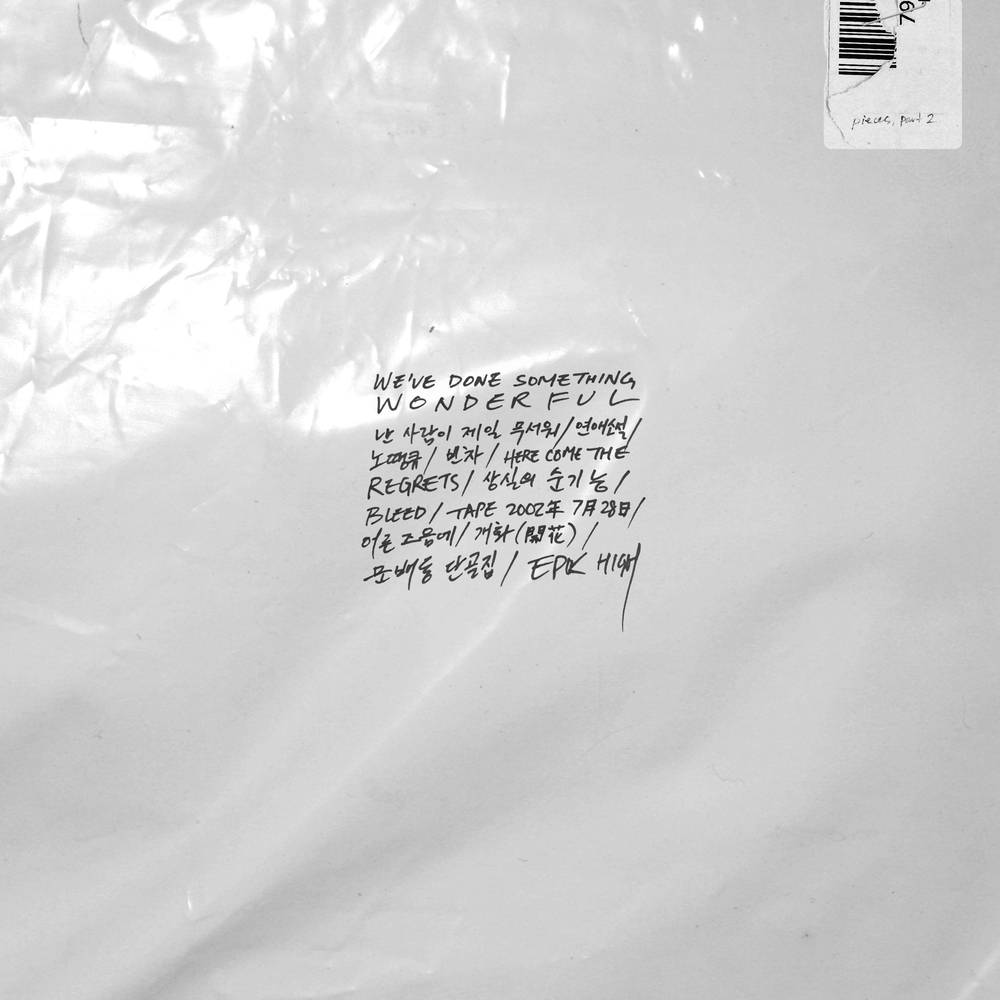 67
pieces, part 2
WE'VE DONE SOMETHING
WONDERFUL
난 사람이 제일 무서워/연애소설/
노땡큐/빈차/HERE COME THE
REGRETS/상실의 순기능/
BLEED/TAPE 2002年 7月28日/
어른 즈음에/개화(開花)/
문배동 단골집/EPIK HIGH